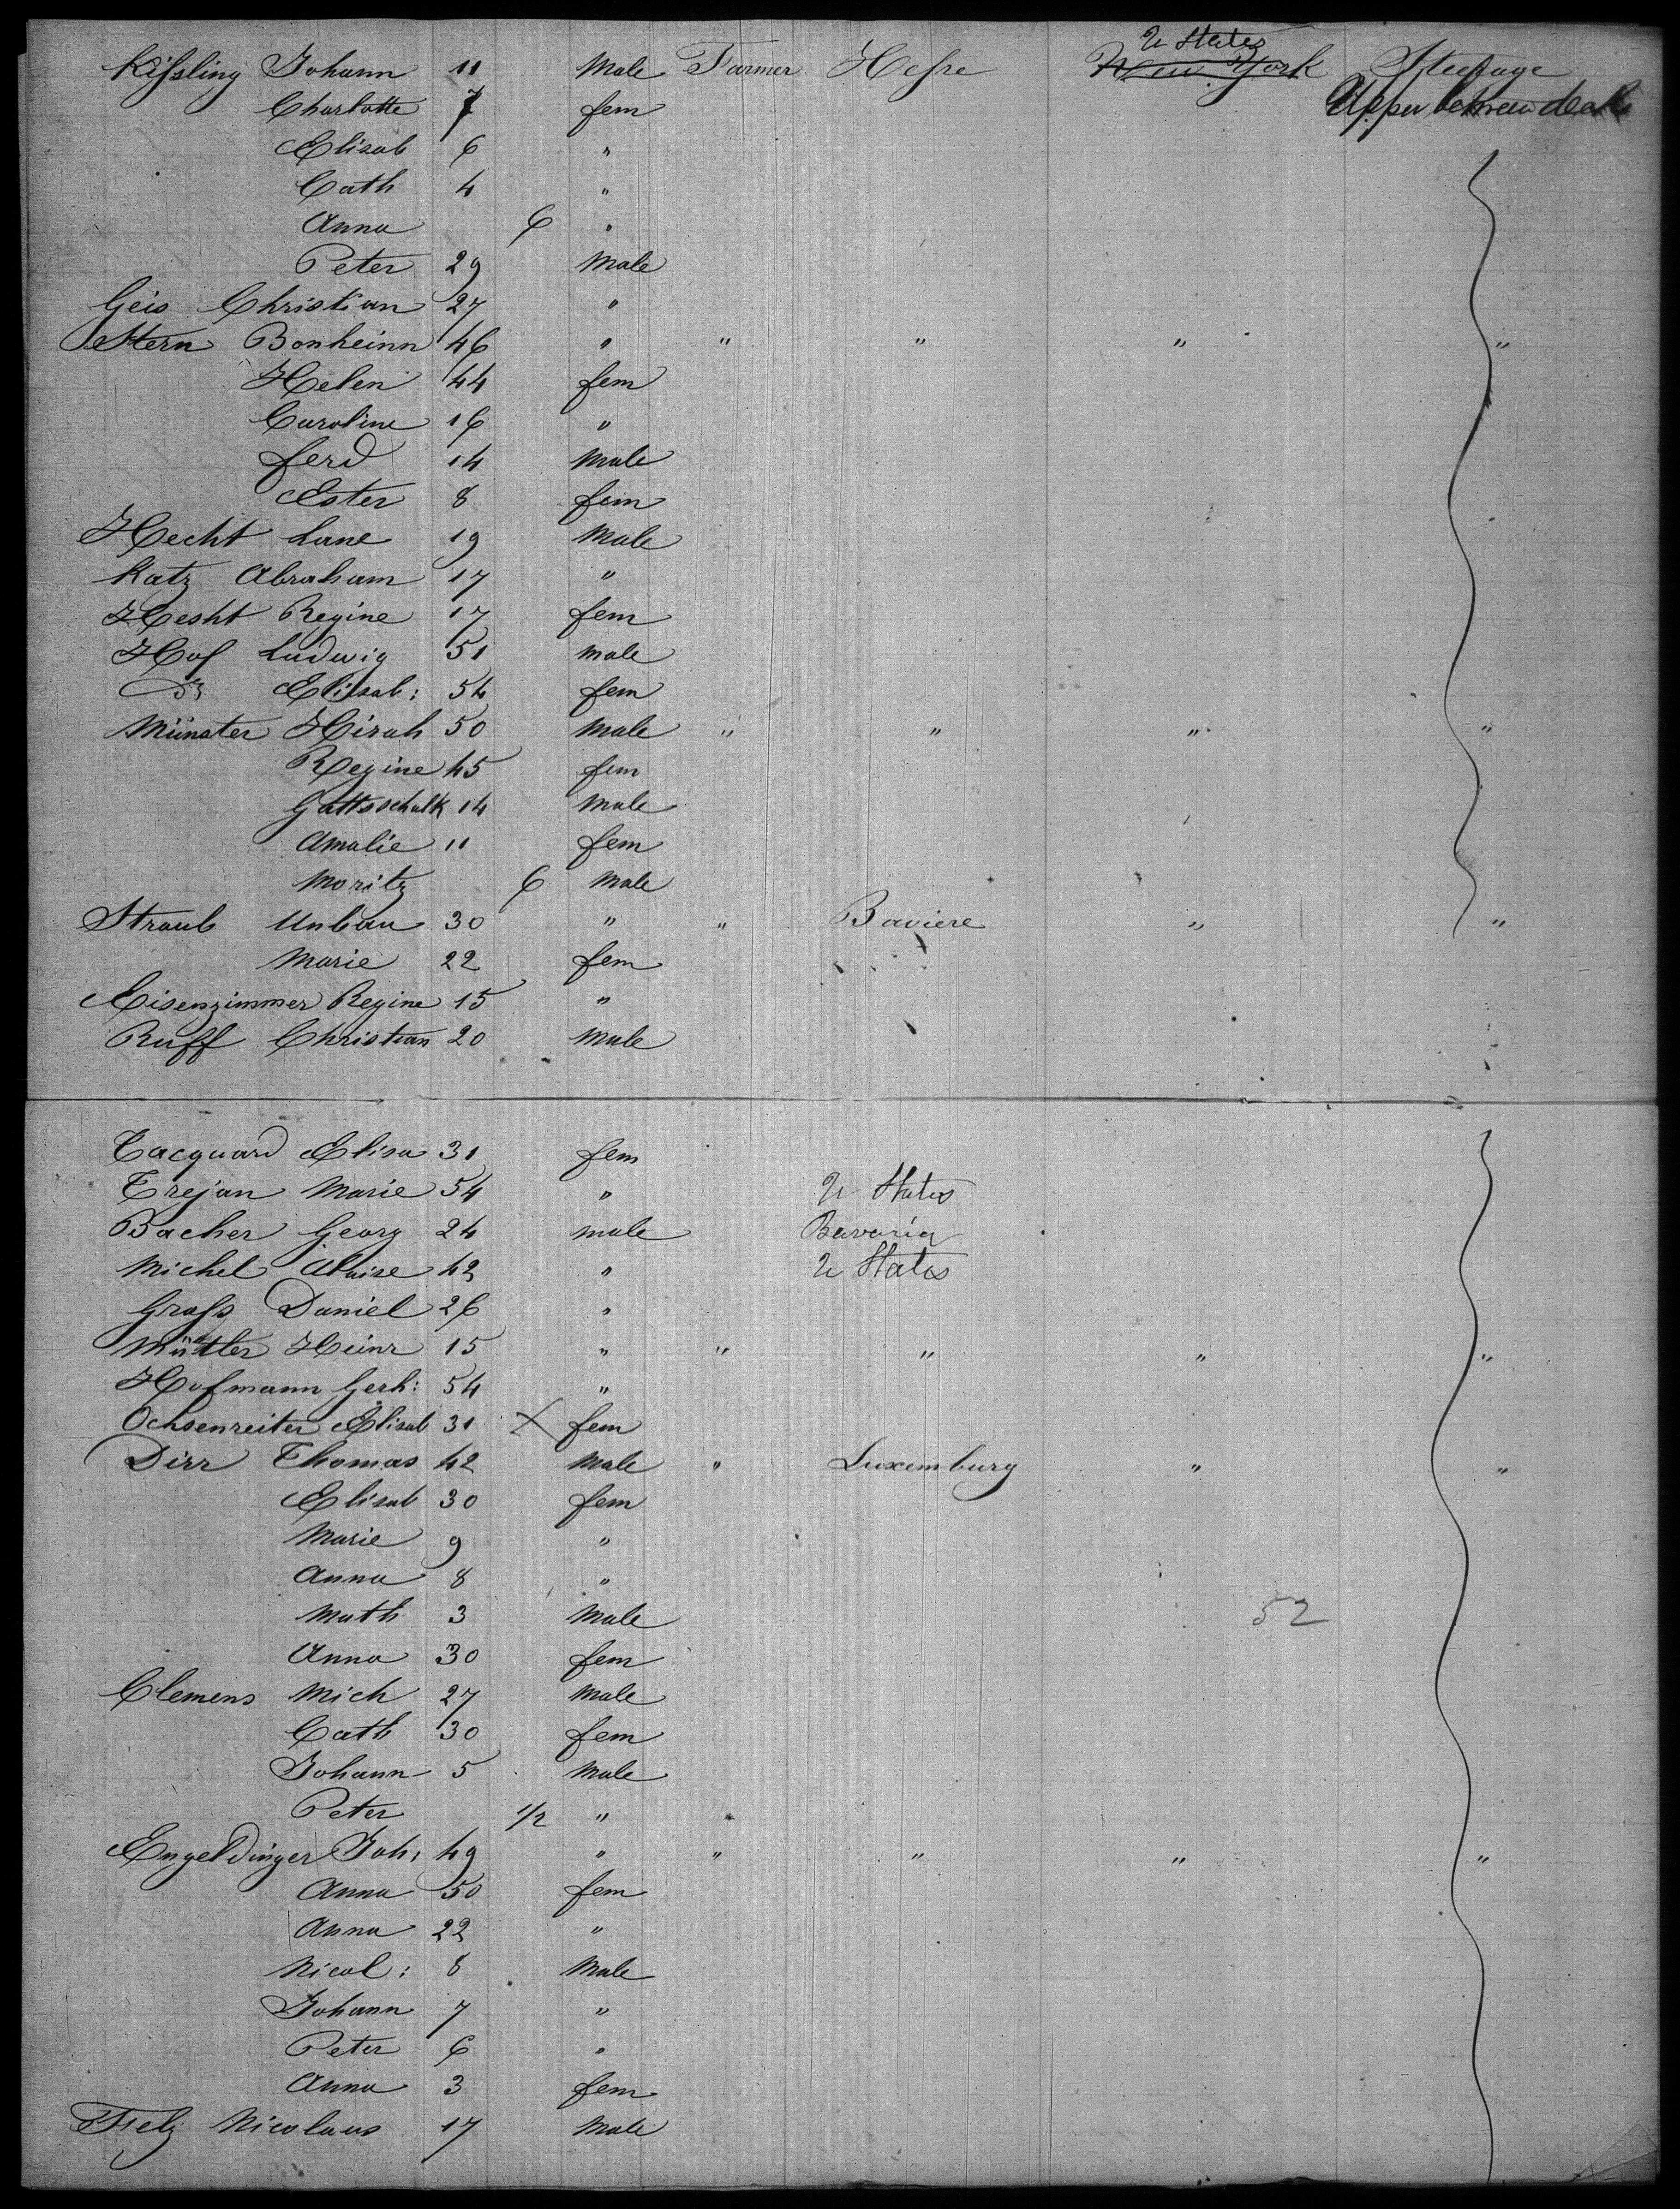 U States
Kissling Johann 11 Male Farmer Hesse New York Steerage
Charlotte 7 fem Upper between decks
Elisab 6 "
Cath 4 "
Anna 6 "
Peter 29 Male
Geis Christian 27 "
Stern Bonheinn 46 " " " " "
Helen 44 fem
Caroline 16 "
Ferd 14 Male
Ester 8 fem
Hecht Lane 19 Male
Katz Abraham 17 "
Hesht Regine 17 fem
Hof Ludwig 51 male
do Elisab: 54 fem
Münster Hirsh 50 Male " " " "
Regine 45 fem
Gattsschalk 14 Male
Amalie 11 fem
Moritz 6 Male
Straub Unbau 30 " " Baviere " "
Marie 22 fem
Eisenzimmer Regine 15 "
Ruff Christian 20 Male
Tacquard Elisa 31 fem
Trejan Marie 54 " U States
Bacher Georg 24 male Bavaria
Michel Aloise 42 " U States
Grass Daniel 26 "
Müller Heinr 15 " " " " "
Hofmann Gerh: 54 "
Ochsenreiter Elisab 31 X fem
Dirr Thomas 42 Male " Luxemburg " "
Elisab 30 fem
Marie 9 "
Anna 8 "
Math 3 Male 52
Anna 30 fem
Clemens Mich 27 Male
Cath 30 fem
Johann 5 Male
Peter 1/2 "
Engeldinger Joh: 49 " " " " "
Anna 50 fem
Anna 22 "
Nicol: 8 Male
Johann 7 "
Peter 6 "
Anna 3 fem
Nicolaus 17 Male